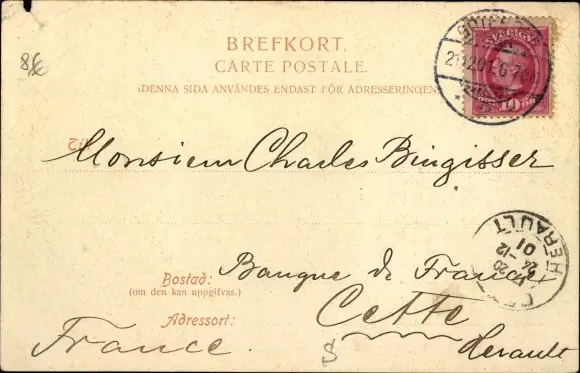 8€
BREFKORT.
CARTE POSTALE.
(DENNA SIDA ANVÄNDES ENDAST FÖR ADRESSERINGEN
SVERIGE
10
Monsieur Charles Bingisser
HERAULT
24 -12
01
Banque de France
Bostad:
(om den kan uppgifvas.)
Cette
Adressort:
France.
S
Herault